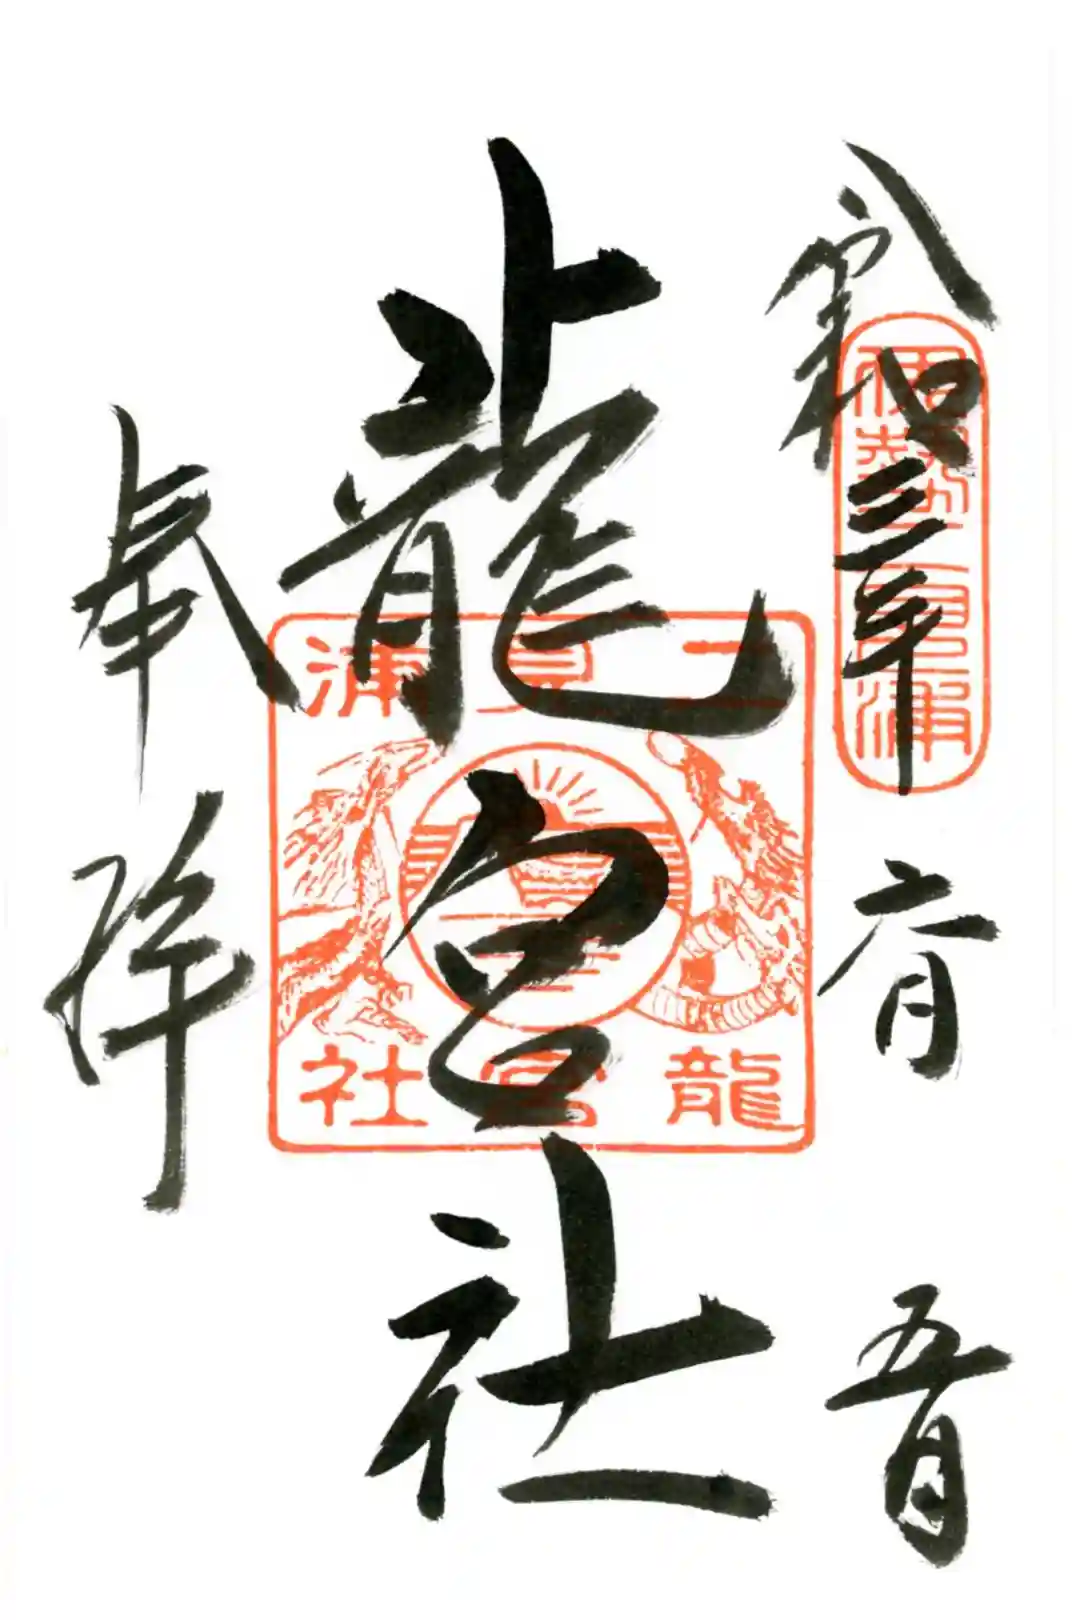 令和三年六月五日
伊勢二見浦
龍宮社
二見浦
龍宮社
奉拝